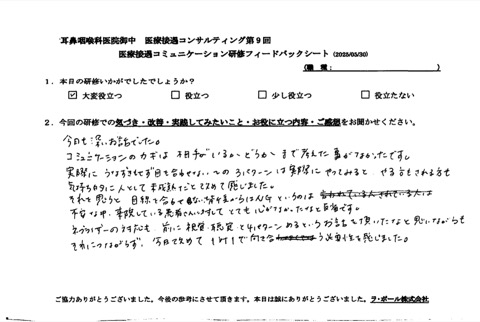 耳鼻咽喉科医院御中 医療接遇コンサルティング第9回
医療接遇コミュニケーション研修フィードバックシート (2025/05/30)
(職種: )
1．本日の研修いかがでしたでしょうか？
☑ 大変役立つ □ 役立つ □ 少し役立つ □ 役立たない
2．今回の研修での気づき・改善・実践してみたいこと・お役に立つ内容・ご感想をお聞かせください。
今日も深いお話でした。
コミュニケーションのカギは相手がいるかどうかまで考えた事がなかったです。
実際にうなずきもせず目も合せない、の3パターンは実際にやってみると、やる方もされる方も
気持ち的に人として未成熟だと改めて感じました。
それを思うと 目線を合せない
不安な中、来院している患者さんに対してとても心がなかったなと自覚です。
前に視覚、聴覚と4パターンあるというお話を頂いたなと思いながらも
今日で改めて1対1で向き合う必要性を感じました。
ご協力ありがとうございました。今後の参考にさせて頂きます。本日は誠にありがとうございました。ラ・ポール株式会社